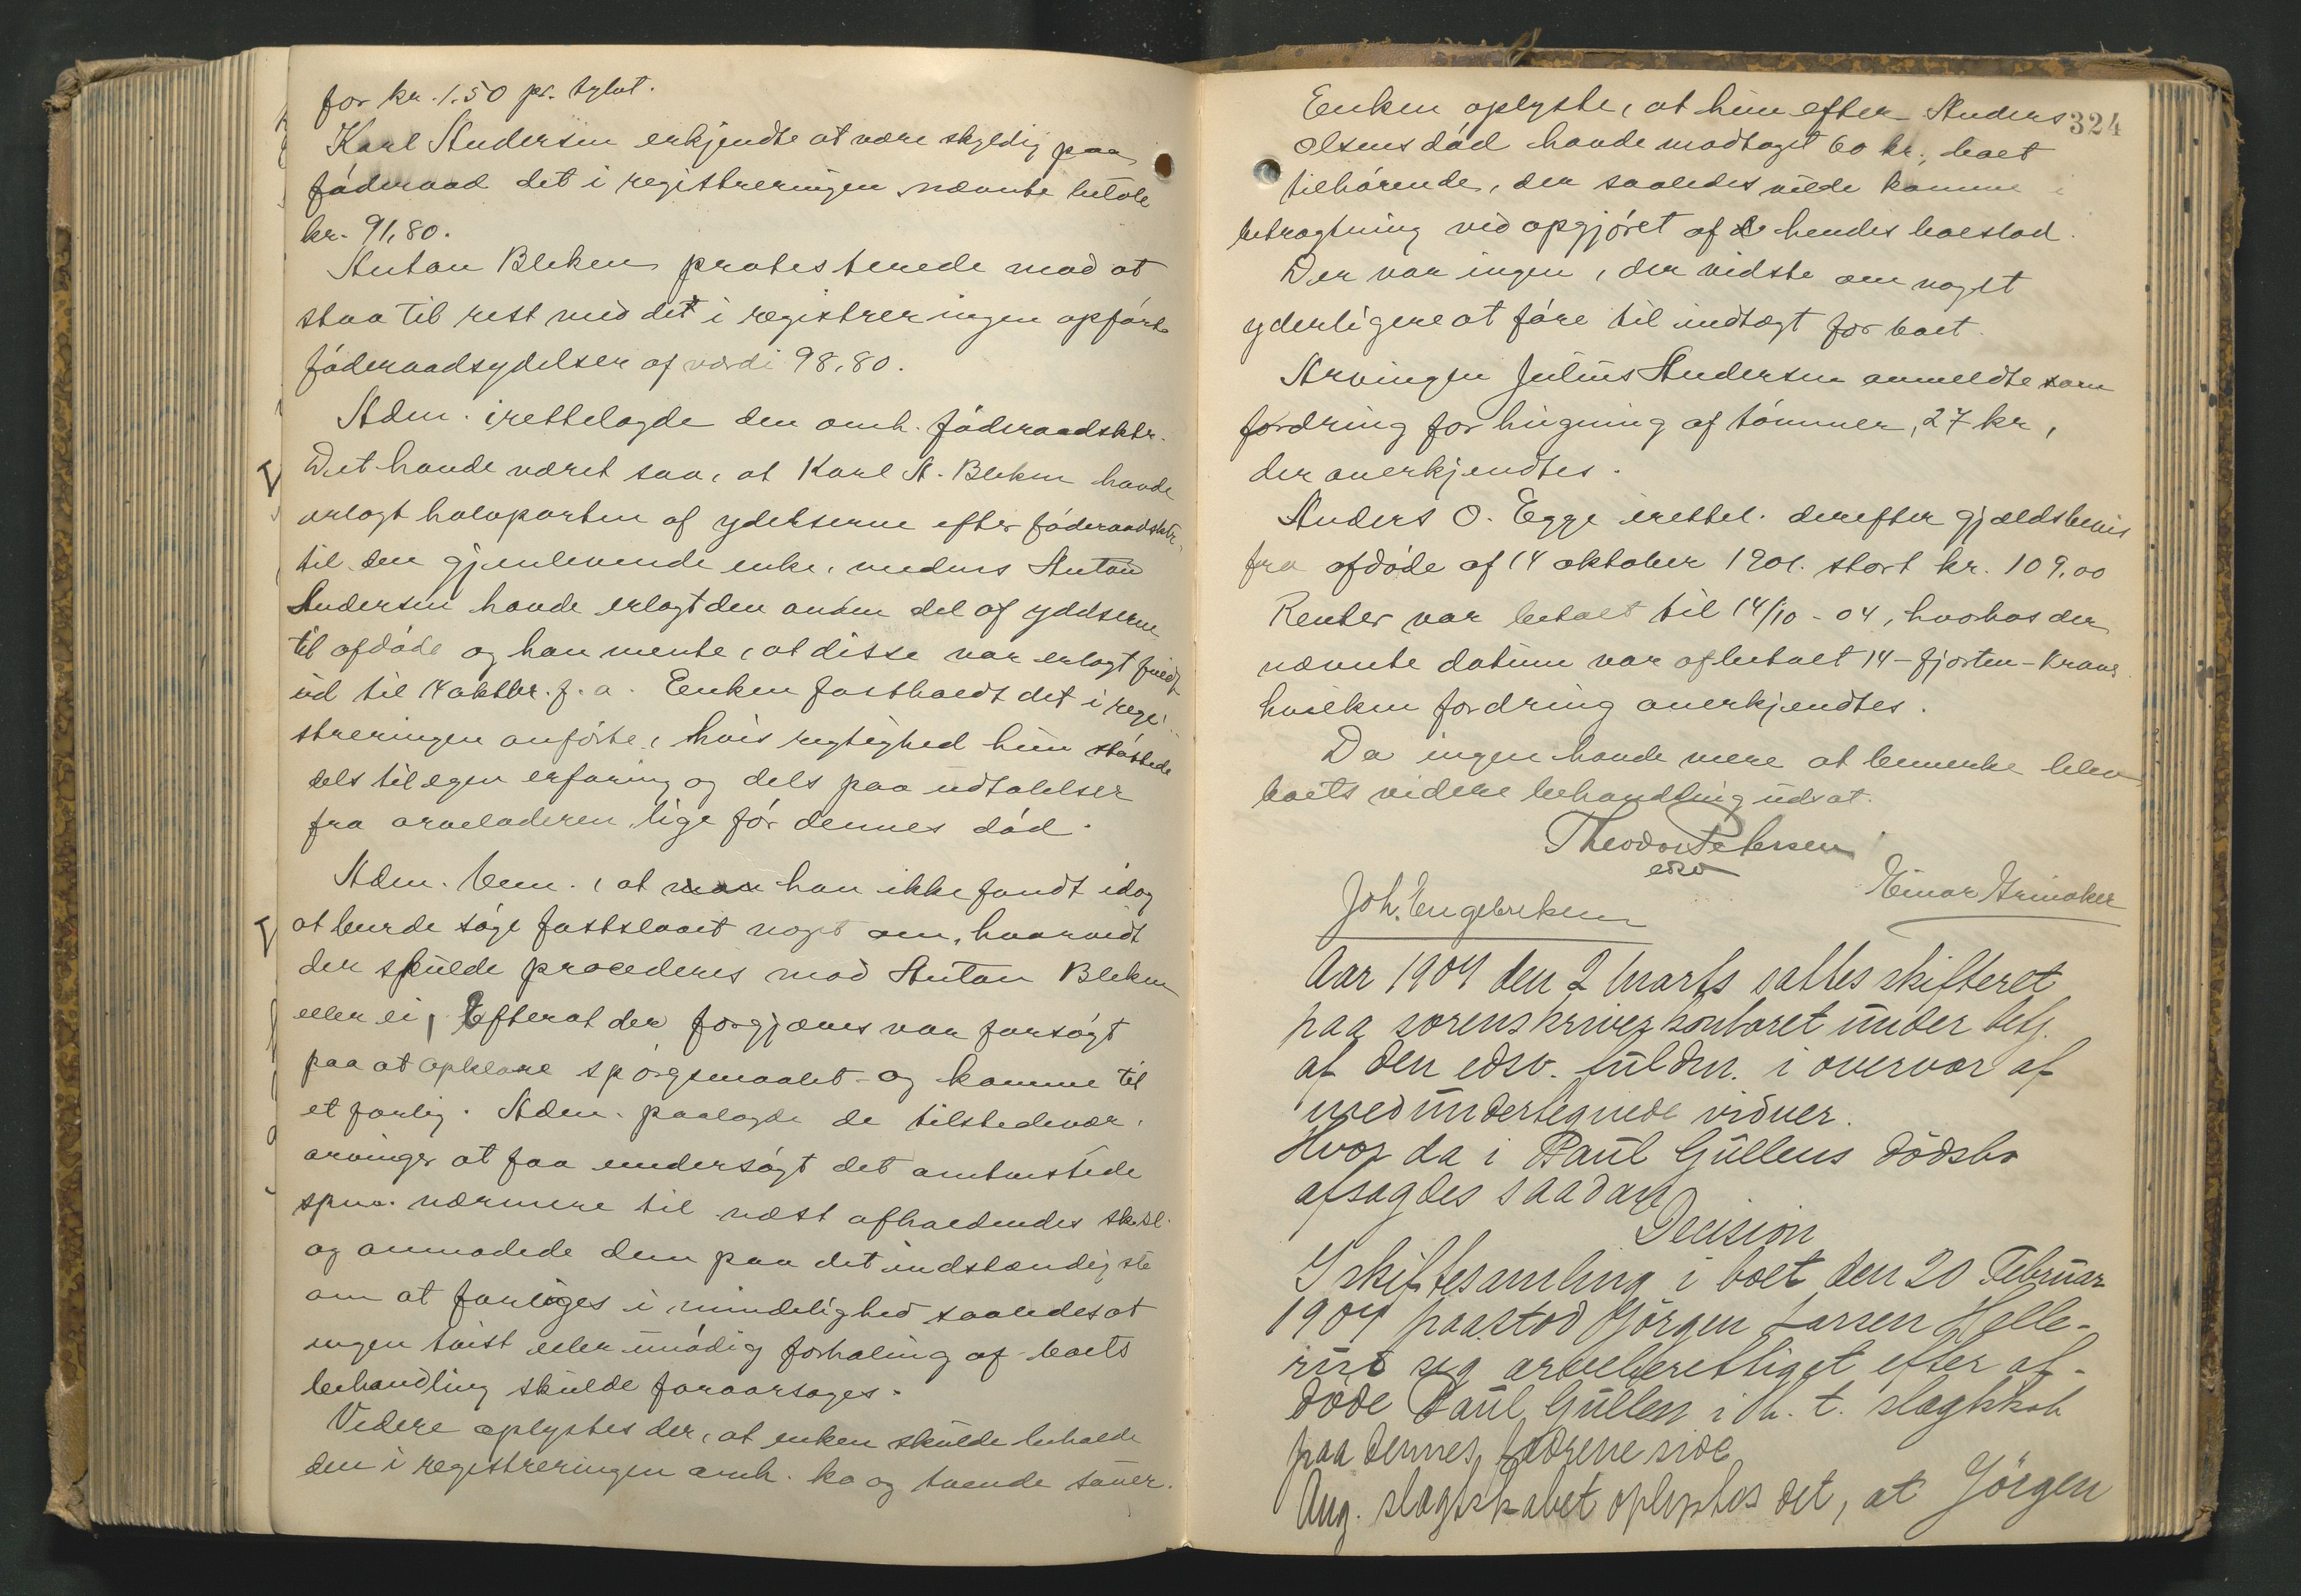 for kr. 1.50 pr. tylvt.
Karl Andersen erkjendte at være skyldig paa
føderaad det i registreringen nævnte beløb
kr. 91,80.
Anton Bleken protesterede mod at
staa til rest med det i registreringen opførte
føderaadsydelser af værdi 98,80.
Adm. irettelagde den omh. føderaadsktr.
Det havde været saa, at Karl A. Bleken havde
erlagt halvparten af ydelserne efter føderaadsktr.
til den gjenlevende enke, medens Anton
Andersen havde erlagt den anden del af ydelserne
til afdøde og han mente, at disse var erlagt fuldt
ud til 14 oktbr. f. a. Enken fastholdt det i regi-
streringen anførte, hvis rigtighed hun støttede
dels til egen erfaring og dels paa udtalelser
fra arveladeren lige før dennes død.
Adm. bem., at man han ikke fandt idag
at burde søge fastslaaet noget om, hvorvidt
der skulde procederes mod Anton Bleken
eller ei, Efterat der forgjæves var forsøgt
paa at opklare spørgsmaalet og komme til
et forlig. Adm. paalagde de tilstedevær.
arvinger at faa undersøgt det omtvistede
spm. nærmere til næst afholdendes sksl.
og anmodede dem paa det indstændigste
om at forliges i mindelighed saaledes at
ingen tvist eller unødig forhaling af boets
behandling skulde foraarsages.
Videre oplystes der, at enken skulde beholde
den i registreringen omh. ko og tvende sauer.
324
Enken oplyste, at hun efter Anders
Olsens død havde modtaget 60 kr., boet
tilhørende, der saaledes vilde komme i
betragtning ved opgjøret af hendes boeslod.
Der var ingen, der vidste om noget
yderligere at føre til indtægt for boet.
Arvingen Julius Andersen anmeldte som
fordring for hugning af tømmer, 27 kr,
der anerkjendtes.
Anders O. Egge irettel. derefter gjældsbevis
fra afdøde af 14 oktober 1901. stort kr. 109,00
Renter var betalt til 14/10 - 04, hvorhos der
nævnte datum var afbetalt 14 - fjorten - Kroner
hvilken fordring anerkjendtes.
Da ingen havde mere at bemerke blev
boets videre behandling udsat.
Theodor Petersen
edsv
Joh. Engebretsen
Einar Grinaker
Aar 1904 den 2 marts sattes skifteret
paa sorenskriverkontoret under betj.
af den edsv. fuldm. i overvær af
medundertegnede vidner.
Hvor da i Paul Gullens dødsbo
afsagdes saadan
Decision
I skiftesamling i boet den 20 Februar
1904 paastod Jörgen Larsen Helle-
rud sig arveberettiget efter af-
døde Paul Gullen i h. t. slægtskab
paa dennes fædrene side
Ang. slægtskabet oplystes det, at Jörgen